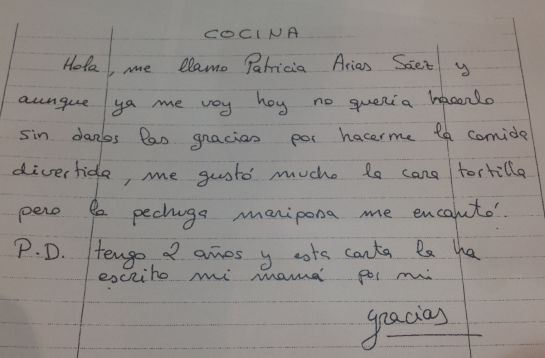 COCINA
Hola, me llamo Patricia Arias Sáez y
aunque ya me voy hoy no quería hacerlo
sin daros las gracias por hacerme la comida
divertida, me gustó mucho la cara tortilla
pero la pechuga mariposa me encantó.
P.D. tengo 2 años y esta carta la ha
escrito mi mamá por mi
gracias